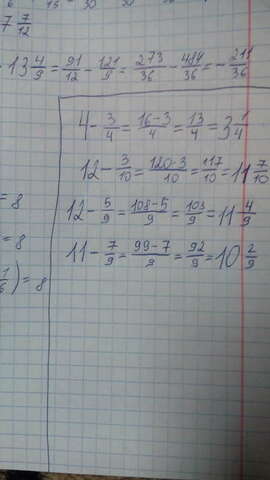 7 7/12
- 13 4/9 = 91/12 - 121/9 = 273/36 - 484/36 = - 211/36
4 - 3/4 = (16-3)/4 = 13/4 = 3 1/4
12 - 3/10 = (120-3)/10 = 117/10 = 11 7/10
= 8
12 - 5/9 = (108-5)/9 = 103/9 = 11 4/9
= 8
11 - 7/9 = (99-7)/9 = 92/9 = 10 2/9
1/6) = 8